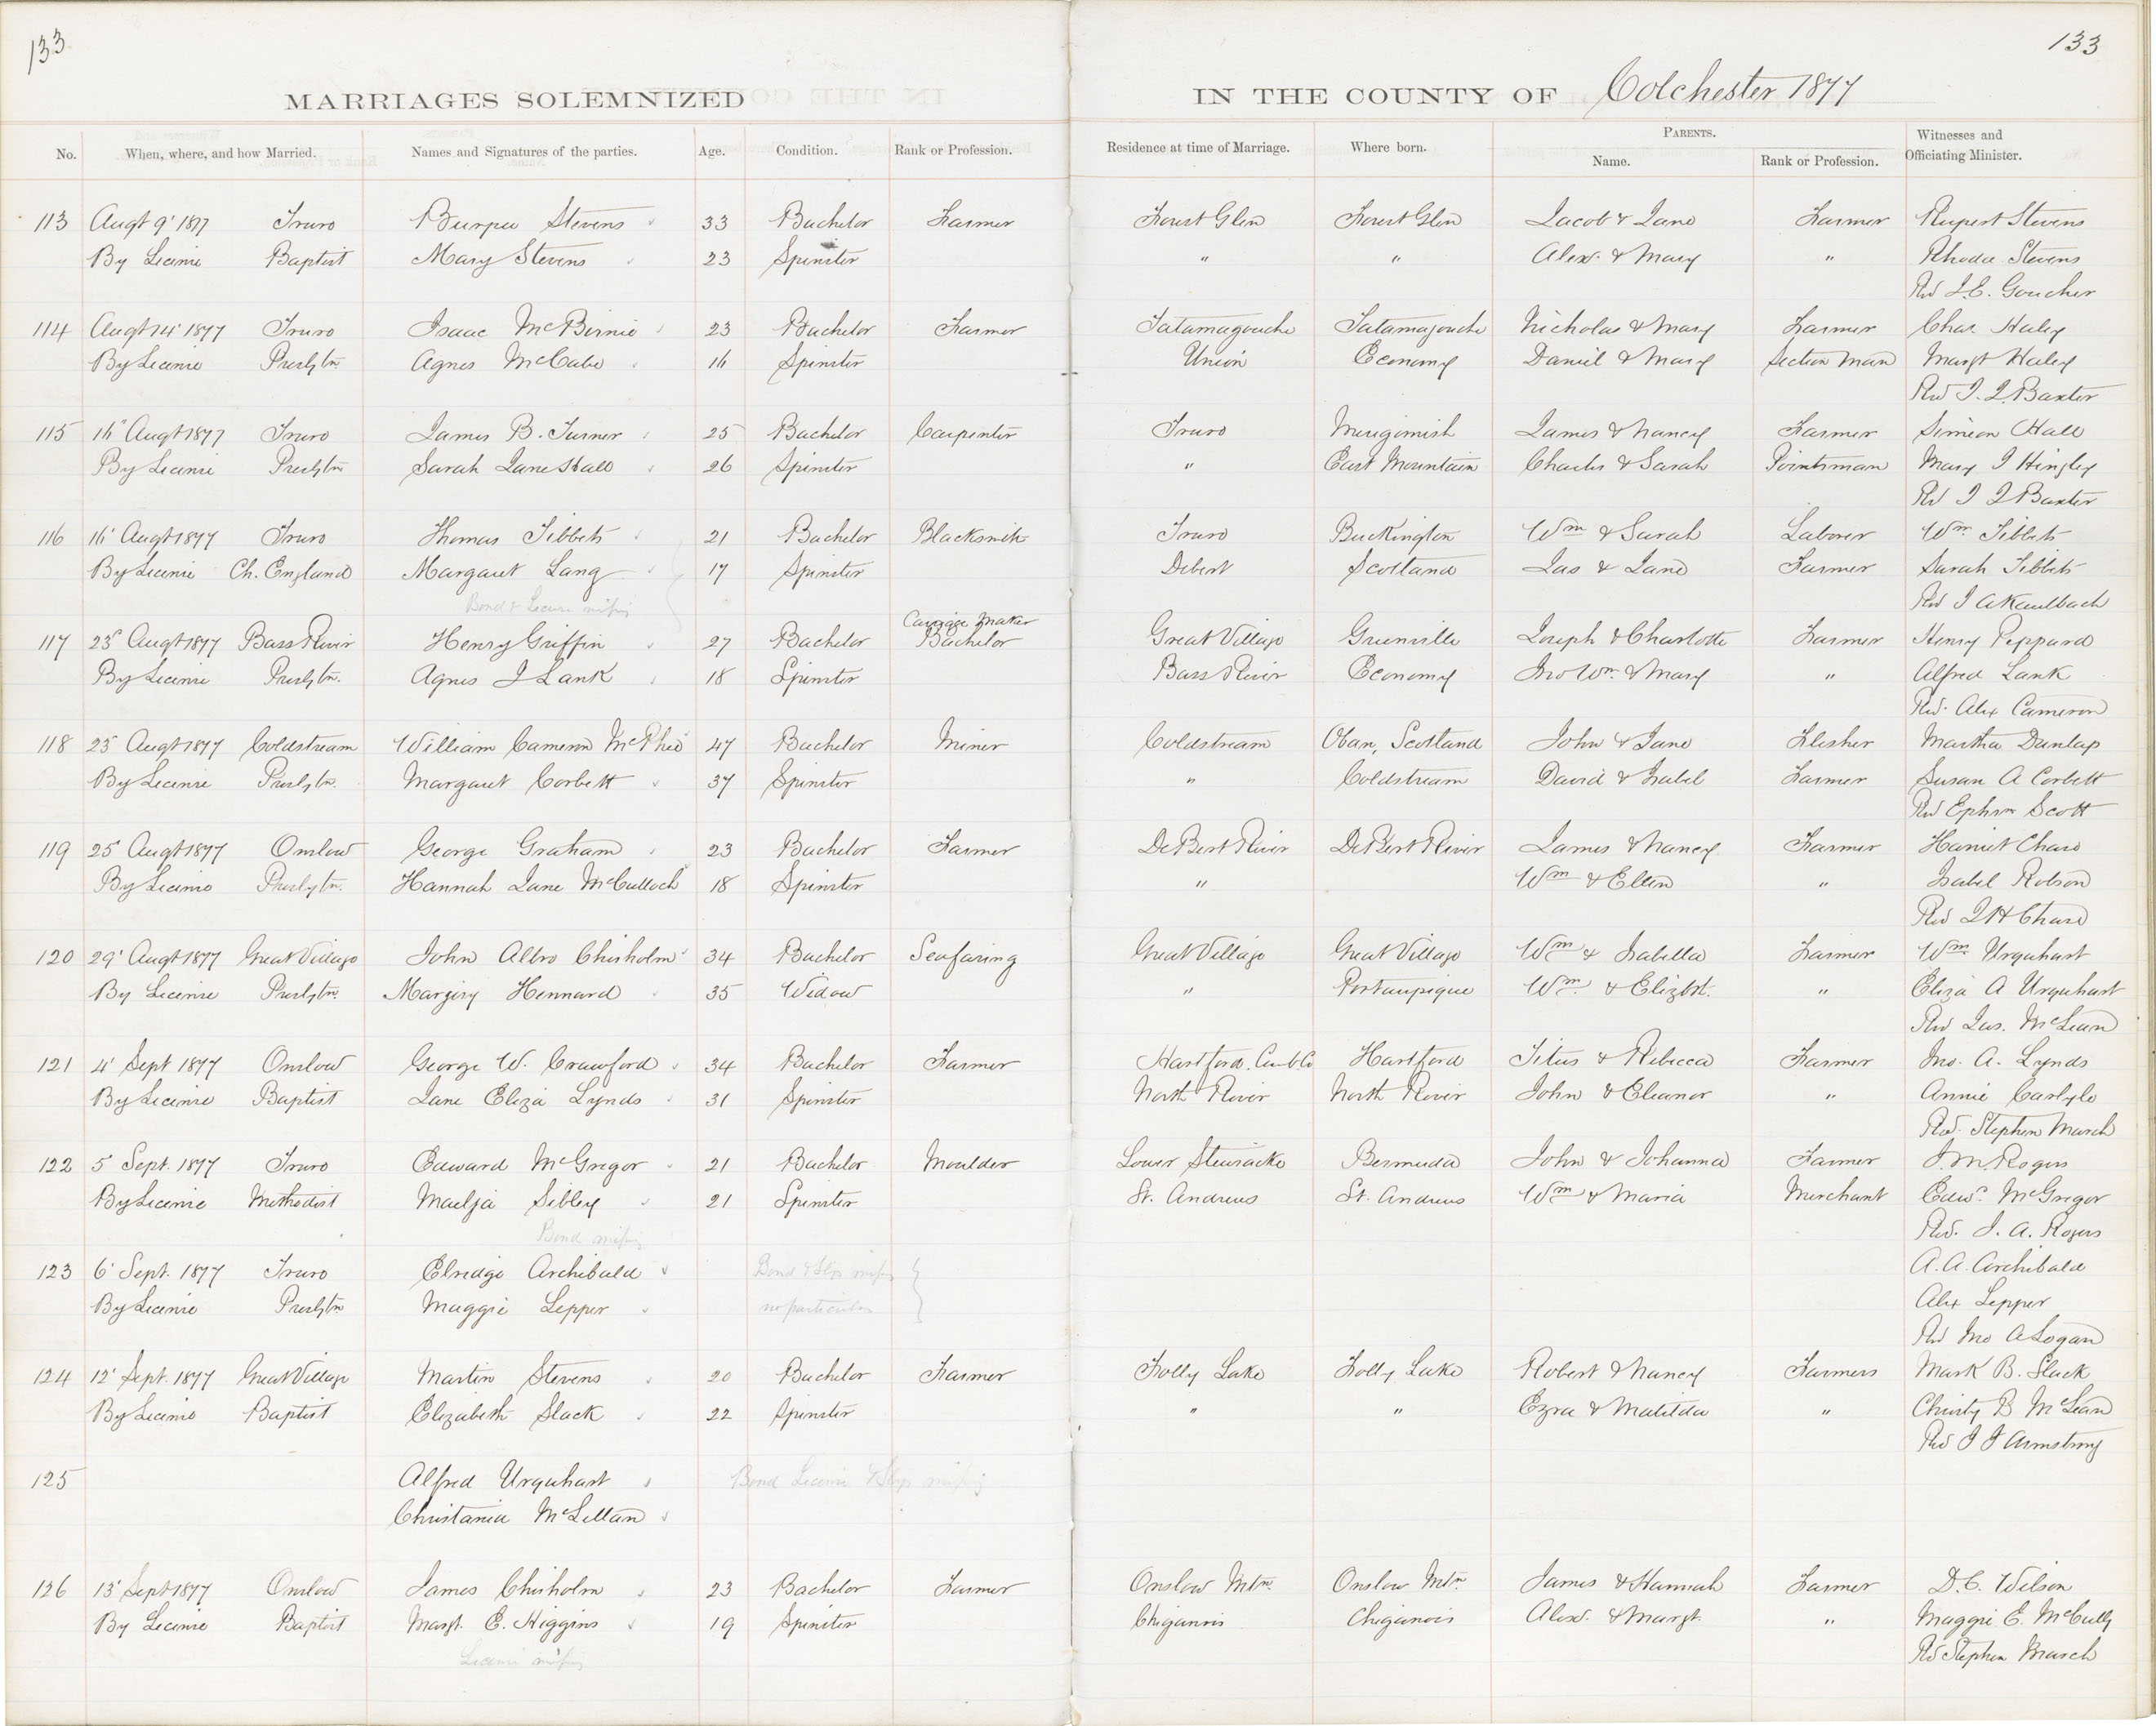 133
133
MARRIAGES SOLEMNIZED IN THE COUNTY OF Colchester 1877
No. When, where, and how Married. Names and Signatures of the parties. Age. Condition. Rank or Profession. Residence at time of Marriage. Where born. PARENTS. Name. Rank or Profession. Witnesses and Officiating Minister.
113 Augt 9' 1877 Truro Burpee Stevens 33 Bachelor Farmer Forest Glen Forest Glen Jacob & Jane Farmer Rupert Stevens
By Licence Baptist Mary Stevens 23 Spinster " " Alexr. & Mary " Rhoda Stevens
Rev J.E. Goucher
114 Augt 14' 1877 Truro Isaac McBirnie 23 Bachelor Farmer Tatamagouche Tatamagouche Nicholas & Mary Farmer Chas Haley
By Licence Presbytn Agnes McCabe 16 Spinster Union Economy Daniel & Mary Section Man Margt Haley
Rev J. I. Baxter
115 16" Augt 1877 Truro James B. Turner 25 Bachelor Carpenter Truro Merigomish James & Nancy Farmer Simeon Hall
By Licence Presbytn Sarah Jane Hall 26 Spinster " East Mountain Charles & Sarah Pointsman Mary J Hingley
Rev J I Baxter
116 16' Augt 1877 Truro Thomas Tibbets 21 Bachelor Blacksmith Truro Buckington Wm & Sarah Laborer Wm. Tibbets
By Licence Ch. England Margaret Lang 17 Spinster Debert Scotland Jas & Jane Farmer Sarah Tibbets
Bond & Licence missing Rev J A Kaulbach
Carriage Maker
117 23" Augt 1877 Bass River Henry Griffin 27 Bachelor Bachelor Great Village Greenville Joseph & Charlotte Farmer Henry Peppard
By Licence Presbytn. Agnes J Lank 18 Spinster Bass River Economy Jno Wm. & Mary " Alfred Lank
Rev. Alex Cameron
118 23' Augt 1877 Coldstream William Cameron McPhee 47 Bachelor Miner Coldstream Oban, Scotland John & Jane Flesher Martha Dunlap
By Licence Presbytn. Margaret Corbett 37 Spinster " Coldstream David & Isabel Farmer Susan A Corbett
Rev Ephm Scott
119 25' Augt 1877 Onslow George Graham 23 Bachelor Farmer DeBert River DeBert River James & Nancy Farmer Harriet Chase
By Licence Presbytn. Hannah Jane McCulloch 18 Spinster " Wm & Ellen " Isabel Robson
Rev J H Chase
120 29' Augt 1877 Great Village John Albro Chisholm 34 Bachelor Seafaring Great Village Great Village Wm & Isabella Farmer Wm Urquhart
By Licence Presbytn. Margery Hennard 35 Widow " Portaupique Wm. & Elizbt. " Eliza A Urquhart
Rev Jas. McLean
121 4' Sept 1877 Onslow George W. Crawford 34 Bachelor Farmer Hartford. Cumb Co Hartford Titus & Rebecca Farmer Jno. A. Lynds
By Licence Baptist Jane Eliza Lynds 31 Spinster North River North River John & Eleanor " Annie Carlyle
Rev. Stephen March
122 5' Sept. 1877 Truro Edward McGregor 21 Bachelor Moulder Lower Stewiacke Bermuda John & Johanna Farmer J. M. Rogers
By Licence Methodist Sibley 21 Spinster St. Andrews St. Andrews Wm & Maria Merchant Edwd. McGregor
Bond missing Rev. J. A. Rogers
123 6' Sept. 1877 Truro Elridge Archibald Bond & Slips missing A. A. Archibald
By Licence Presbytn Maggie Lepper no particulars Alex Lepper
Rev Jno A Logan
124 12' Sept. 1877 Great Village Martin Stevens 20 Bachelor Farmer Folly Lake Folly Lake Robert & Nancy Farmers Mark B. Slack
By Licence Baptist Elizabeth Slack 22 Spinster " " Ezra & Matilda " Christy B McLean
Rev J J Armstrong
125 Alfred Urquhart Bond Licence & Slips missing
Christania McLellan
126 13' Sept 1877 Onslow James Chisholm 23 Bachelor Farmer Onslow Mtn. Onslow Mtn. James & Hannah Farmer D. C. Wilson
By Licence Baptist Margt. E. Higgins 19 Spinster Chiganois Chiganois Alexr. & Margt. " Maggie E. McCully
Licence missing Rev Stephen March